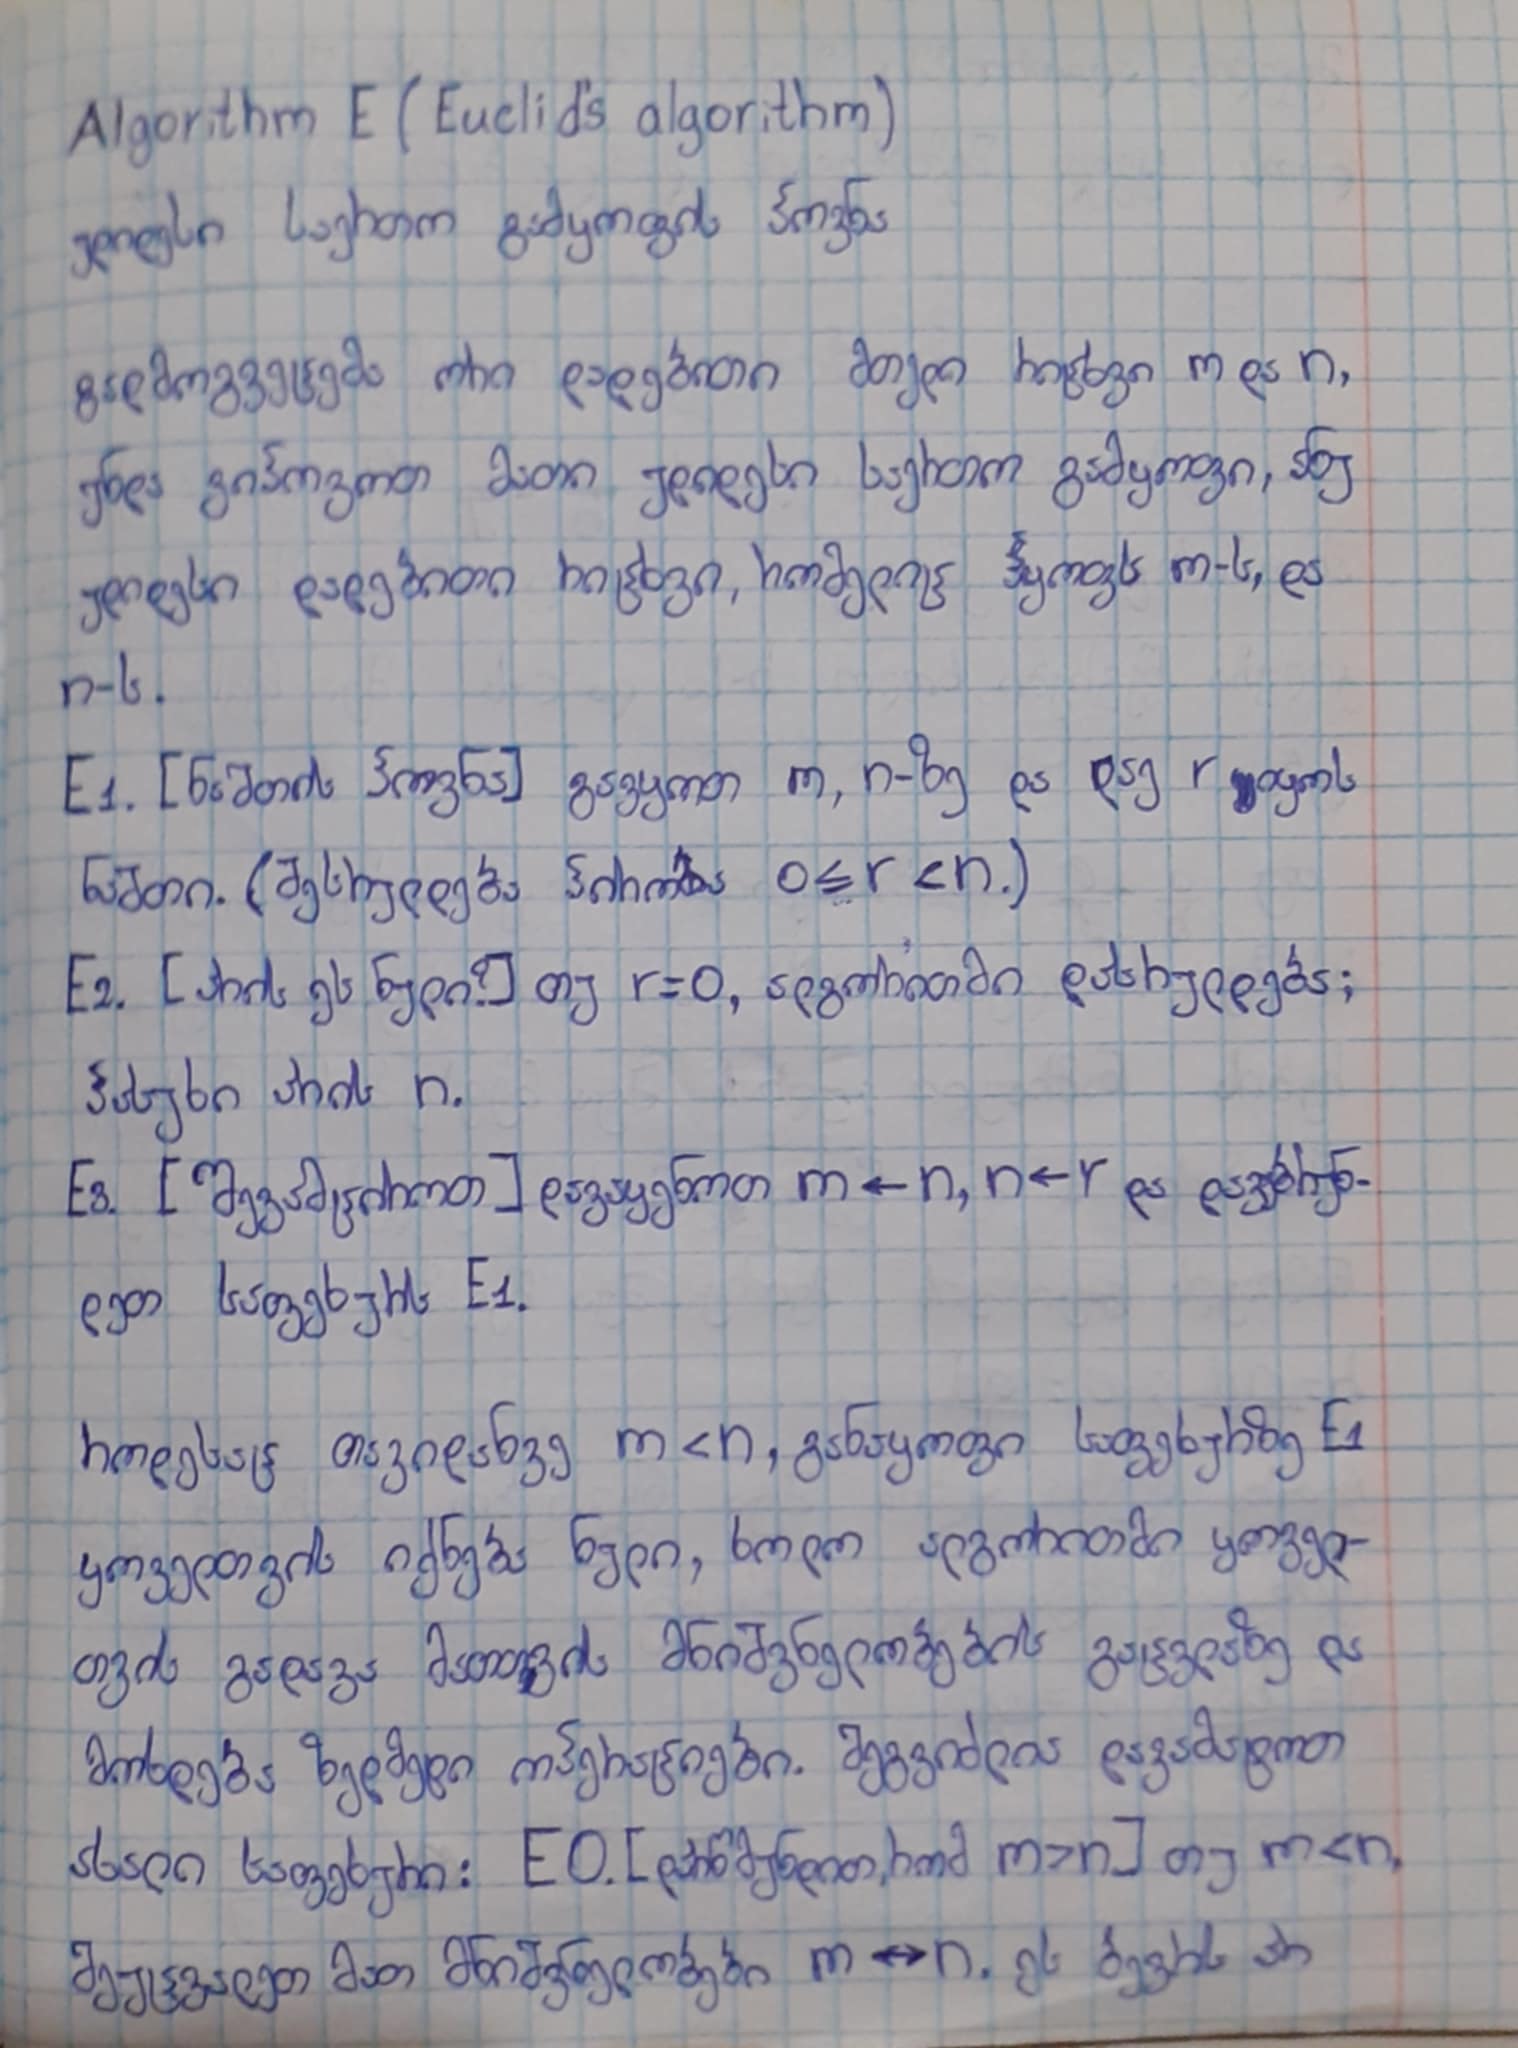 Algorithm E (Euclid's algorithm)
უდიდესი საერთო გამყოფის პოვნა
გადმოგვეცემა ორი დადებითი მთელი რიცხვი m და n,
უნდა ვიპოვოთ მათი უდიდესი საერთო გამყოფი, ანუ
უდიდესი დადებითი რიცხვი, რომელიც ჰყოფს m-ს, და
n-ს.
E1. [ნაშთის პოვნა] გავყოთ m, n-ზე და დავ r იყოს
ნაშთი. (შესრულდება პირობა 0 ≤ r < n.)
E2. [არის ეს ნული?] თუ r=0, ალგორითმი დასრულდება;
პასუხი არის n.
E3. [შევამციროთ] დავაყენოთ m ← n, n ← r და დავბრუნ-
დეთ საფეხურს E1.
როდესაც თავიდანვე m < n, განაყოფი საფეხურზე E1
ყოველთვის იქნება ნული, ხოლო ალგორითმი ყოველ-
თვის გადავა მათთვის მნიშვნელობების გაცვლაზე და
მოხდება ზედმეტი ოპერაციები. შეგვიძლია დავამატოთ
ახალი საფეხური: E0. [დარწმუნდით, რომ m > n] თუ m < n,
შეუცვალეთ მათ მნიშვნელობები m ↔ n. ეს ბევრს არ